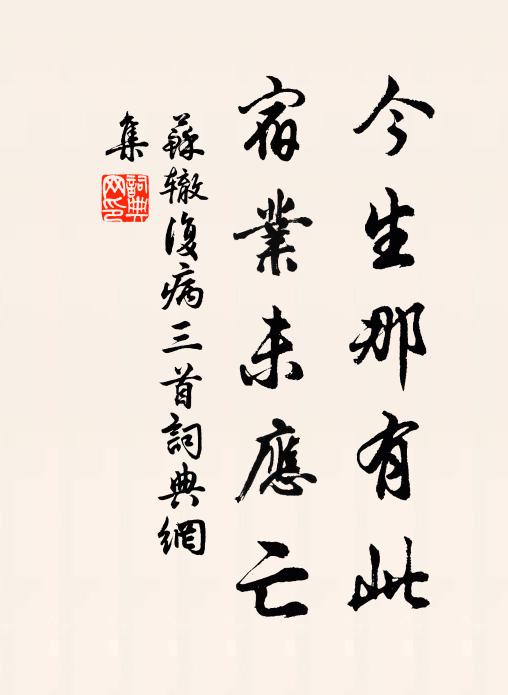 今生那有此
宿業未應亡
蘇辙復病三首詞典網
集
詞典
网印